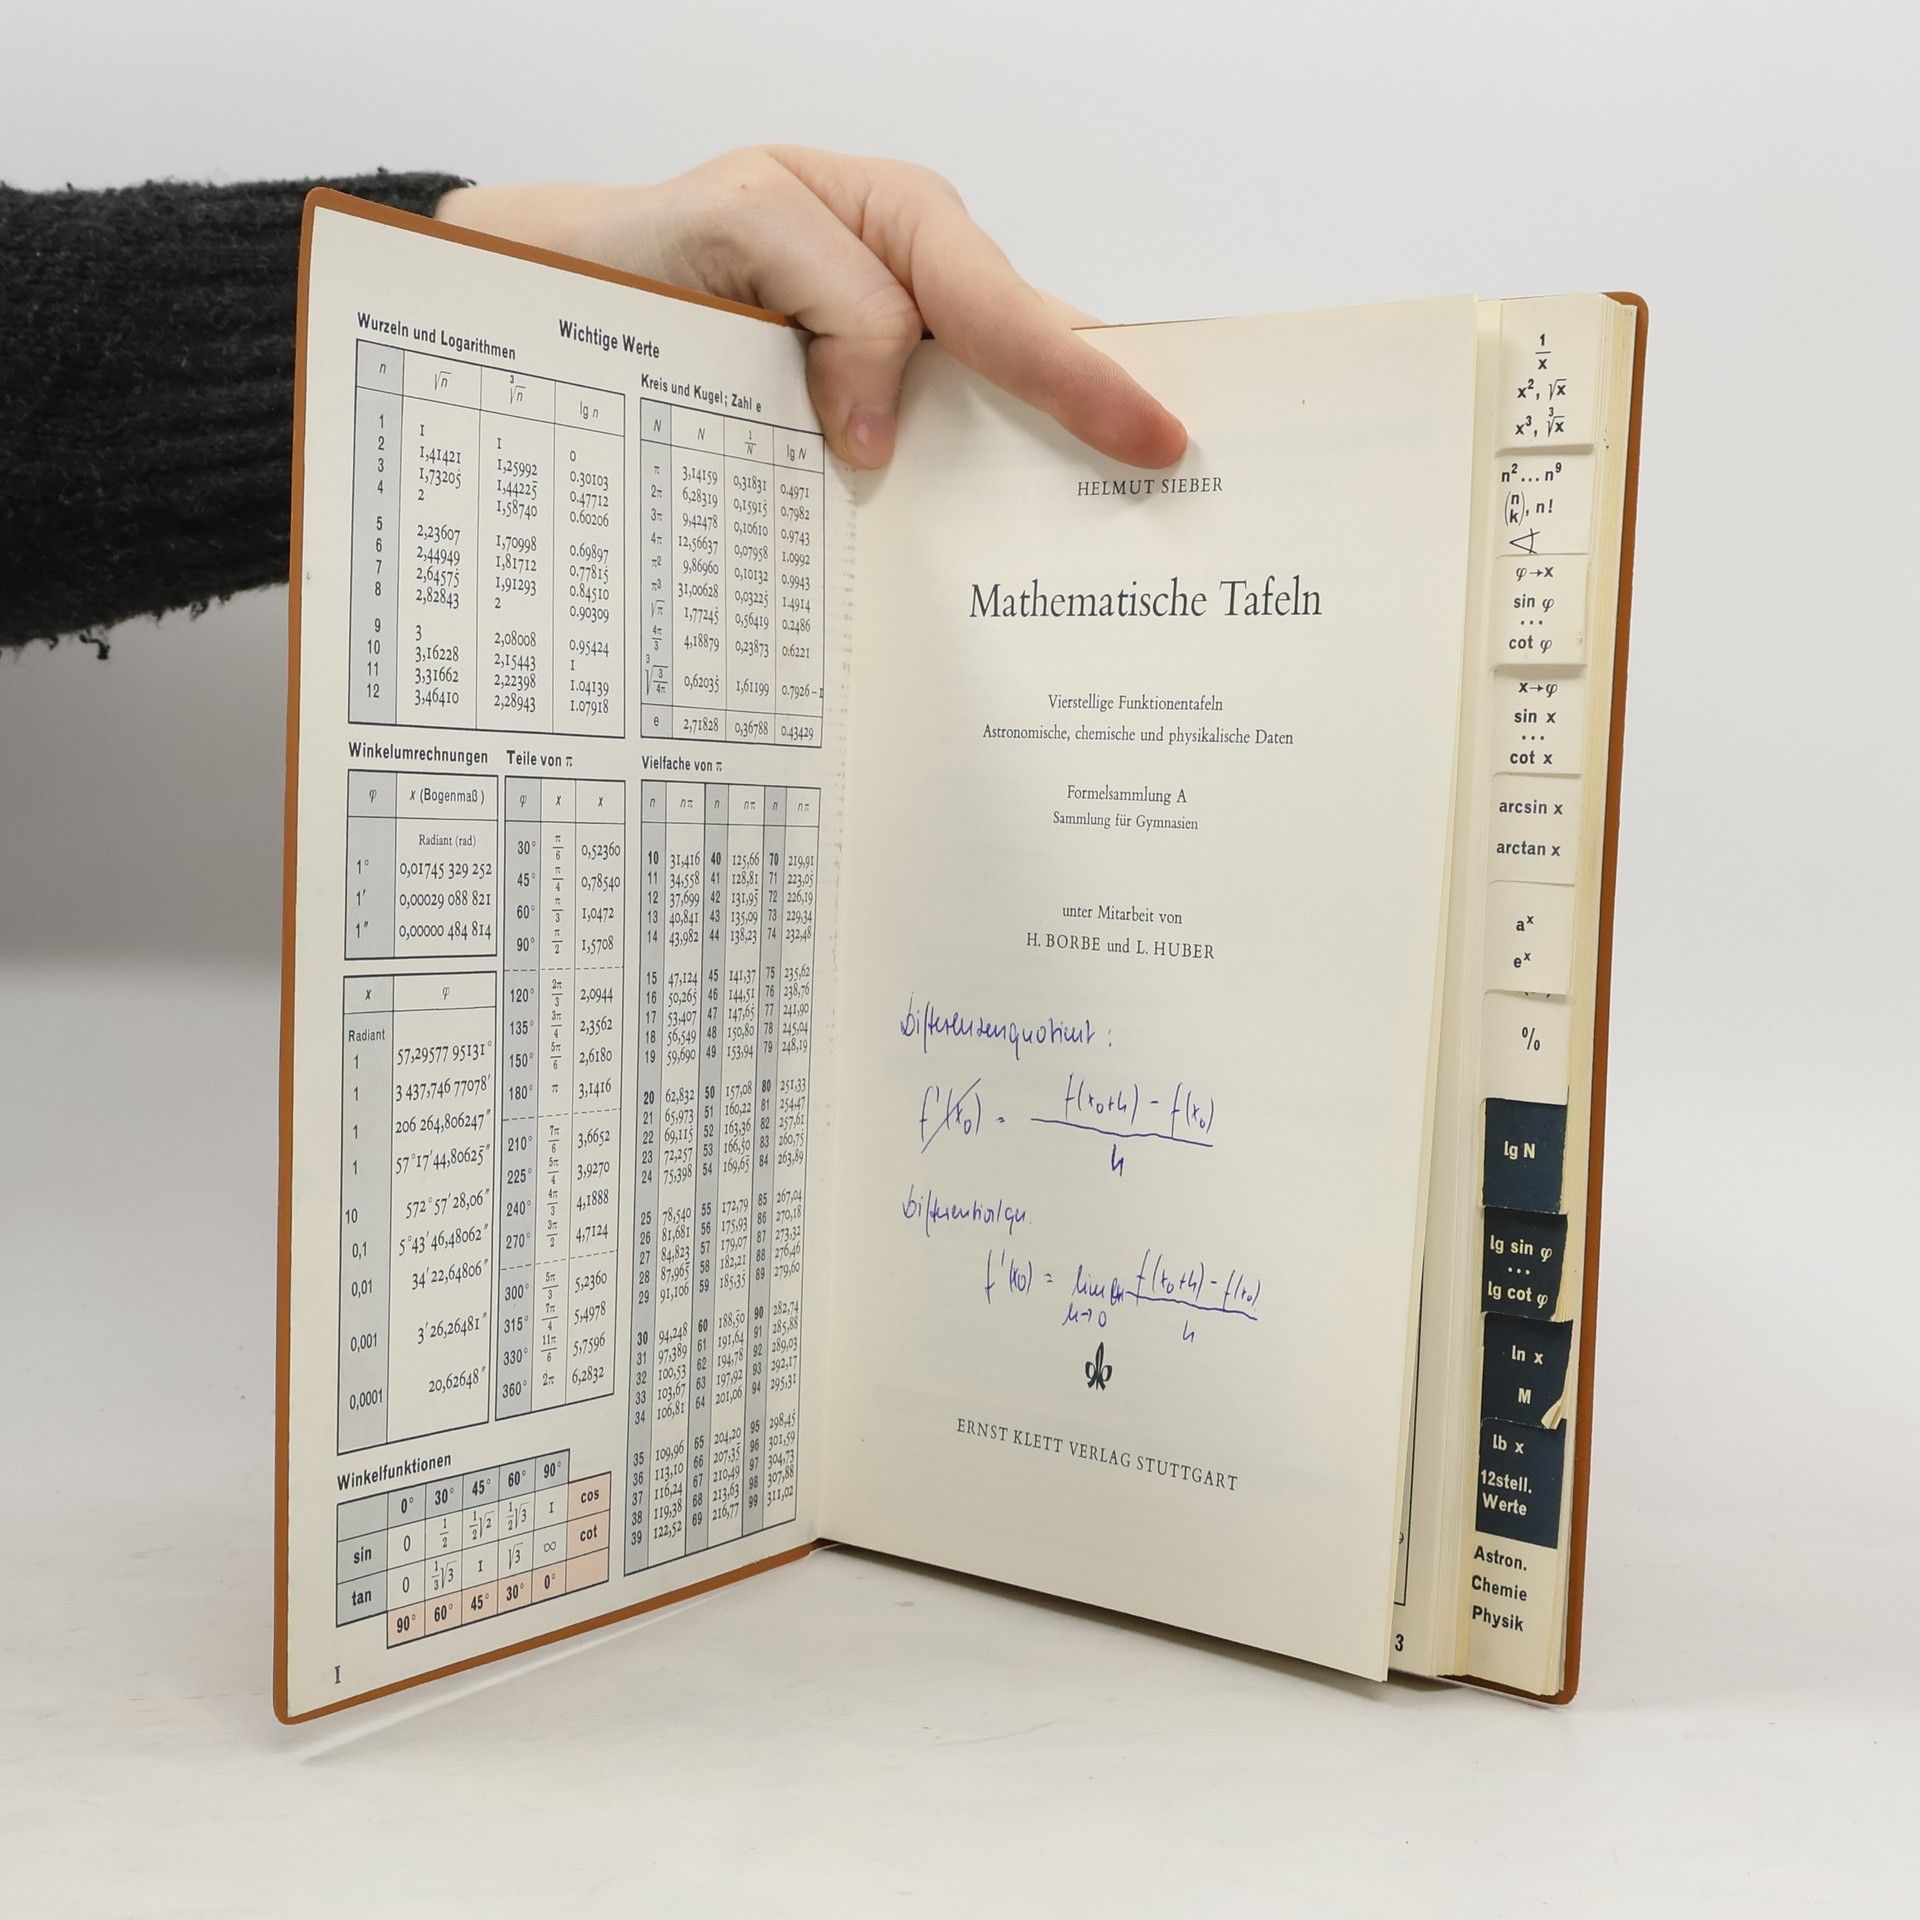 Wichtige Werte
Wurzeln und Logarithmen
n √n ∛n lg n
1 1 1 0
2 1,41421 1,25992 0.30103
3 1,73205 1,44225 0.47712
4 2 1,58740 0.60206
5 2,23607 1,70998 0.69897
6 2,44949 1,81712 0.77815
7 2,64575 1,91293 0.84510
8 2,82843 2 0.90309
9 3 2,08008 0.95424
10 3,16228 2,15443 1
11 3,31662 2,22398 1.04139
12 3,46410 2,28943 1.07918
Kreis und Kugel; Zahl e
N N 1/N lg N
π 3,14159 0,31831 0.4971
2π 6,28319 0,15915 0.7982
3π 9,42478 0,10610 0.9743
4π 12,56637 0,07958 1.0992
π² 9,86960 0,10132 0.9943
π³ 31,00628 0,03225 1.4914
√π 1,77245 0,56419 0.2486
4π/3 4,18879 0,23873 0.6221
∛(3/4π) 0,62035 1,61199 0.7926–1
e 2,71828 0,36788 0.43429
Winkelumrechnungen
φ x (Bogenmaß)
Radiant (rad)
1° 0,01745 329 252
1′ 0,00029 088 821
1″ 0,00000 484 814
x φ
Radiant
1 57,29577 95131°
1 3 437,746 77078′
1 206 264,806247″
1 57°17′44,80625″
10 572°57′28,06″
0,1 5°43′46,48062″
0,01 34′22,64806″
0,001 3′26,26481″
0,0001 20,62648″
Teile von π
φ x x
30° π/6 0,52360
45° π/4 0,78540
60° π/3 1,0472
90° π/2 1,5708
120° 2π/3 2,0944
135° 3π/4 2,3562
150° 5π/6 2,6180
180° π 3,1416
210° 7π/6 3,6652
225° 5π/4 3,9270
240° 4π/3 4,1888
270° 3π/2 4,7124
300° 5π/3 5,2360
315° 7π/4 5,4978
330° 11π/6 5,7596
360° 2π 6,2832
Vielfache von π
n nπ n nπ n nπ
10 31,416 40 125,66 70 219,91
11 34,558 41 128,81 71 223,05
12 37,699 42 131,95 72 226,19
13 40,841 43 135,09 73 229,34
14 43,982 44 138,23 74 232,48
15 47,124 45 141,37 75 235,62
16 50,265 46 144,51 76 238,76
17 53,407 47 147,65 77 241,90
18 56,549 48 150,80 78 245,04
19 59,690 49 153,94 79 248,19
20 62,832 50 157,08 80 251,33
21 65,973 51 160,22 81 254,47
22 69,115 52 163,36 82 257,61
23 72,257 53 166,50 83 260,75
24 75,398 54 169,65 84 263,89
25 78,540 55 172,79 85 267,04
26 81,681 56 175,93 86 270,18
27 84,823 57 179,07 87 273,32
28 87,965 58 182,21 88 276,46
29 91,106 59 185,35 89 279,60
30 94,248 60 188,50 90 282,74
31 97,389 61 191,64 91 285,88
32 100,53 62 194,78 92 289,03
33 103,67 63 197,92 93 292,17
34 106,81 64 201,06 94 295,31
35 109,96 65 204,20 95 298,45
36 113,10 66 207,35 96 301,59
37 116,24 67 210,49 97 304,73
38 119,38 68 213,63 98 307,88
39 122,52 69 216,77 99 311,02
Winkelfunktionen
0° 30° 45° 60° 90°
sin 0 1/2 1/2√2 1/2√3 1 cos
tan 0 1/3√3 1 √3 ∞ cot
90° 60° 45° 30° 0°
I
HELMUT SIEBER
Mathematische Tafeln
Vierstellige Funktionentafeln
Astronomische, chemische und physikalische Daten
Formelsammlung A
Sammlung für Gymnasien
unter Mitarbeit von
H. BORBE und L. HUBER
Differenzenquotient :
f'(x₀) = f(x₀+h) - f(x₀)
h
Differentialqu.
f'(x₀) = lim f(x₀+h) - f(x₀)
h→0 h
ERNST KLETT VERLAG STUTTGART
3
1/x
x², √x
x³, ∛x
n²...n⁹
(n k), n!
∢
φ→x
sin φ
...
cot φ
x→φ
sin x
...
cot x
arcsin x
arctan x
aˣ
eˣ
%
lg N
lg sin φ
...
lg cot φ
ln x
M
lb x
12stell.
Werte
Astron.
Chemie
Physik